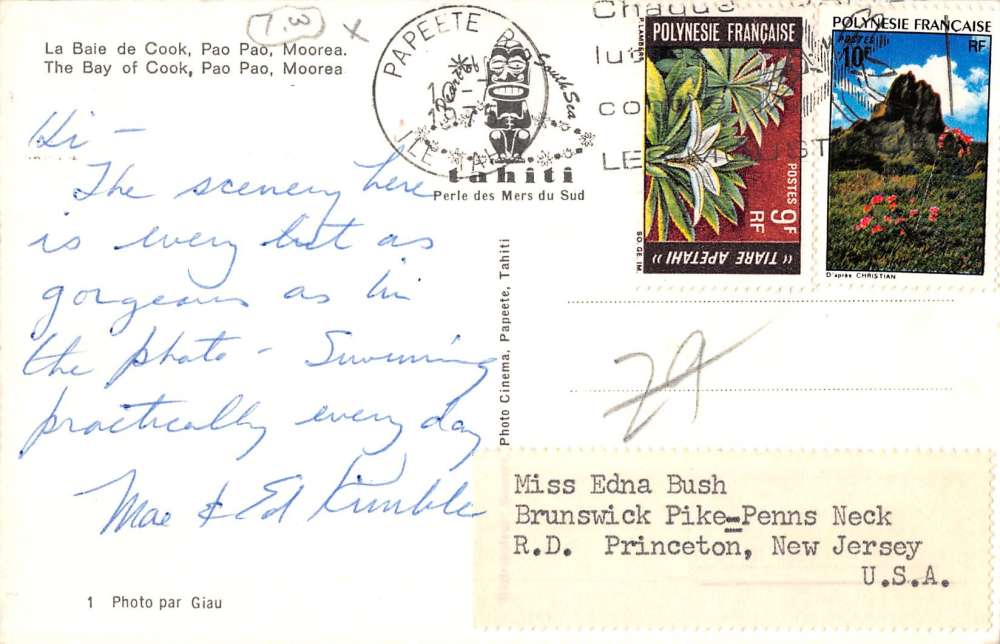 7.00 x
La Baie de Cook, Pao Pao, Moorea.
The Bay of Cook, Pao Pao, Moorea
Hi –
The scenery here
is every bit as
gorgeous as in
the photo – Swimming
practically every day
Mae & Ed Kimble
1 Photo par Giau
PAPEETE R.P.
ILE TAHITI
Pearl of the South Sea
tahiti
Perle des Mers du Sud
Photo Cinema, Papeete, Tahiti
Chaque
LE
POLYNESIE FRANÇAISE
P. LAMBERT
POSTES 9F
RF
“ TIARE APETAHI ”
SO. GE. IM.
POLYNESIE FRANÇAISE
POSTES RF
10F
D'après CHRISTIAN
29
Miss Edna Bush
Brunswick Pike-Penns Neck
R.D. Princeton, New Jersey
U.S.A.